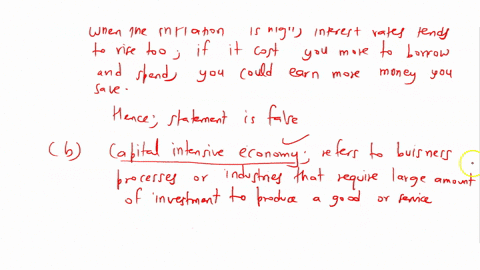 when the inflation is high, interest rates tends
to rise too; if it cost you more to borrow
and spend, you could earn more money you
save.
Hence; statement is false
(b) Capital intensive economy; refers to buisness
processes or industries that require large amount
of investment to produce a good or service